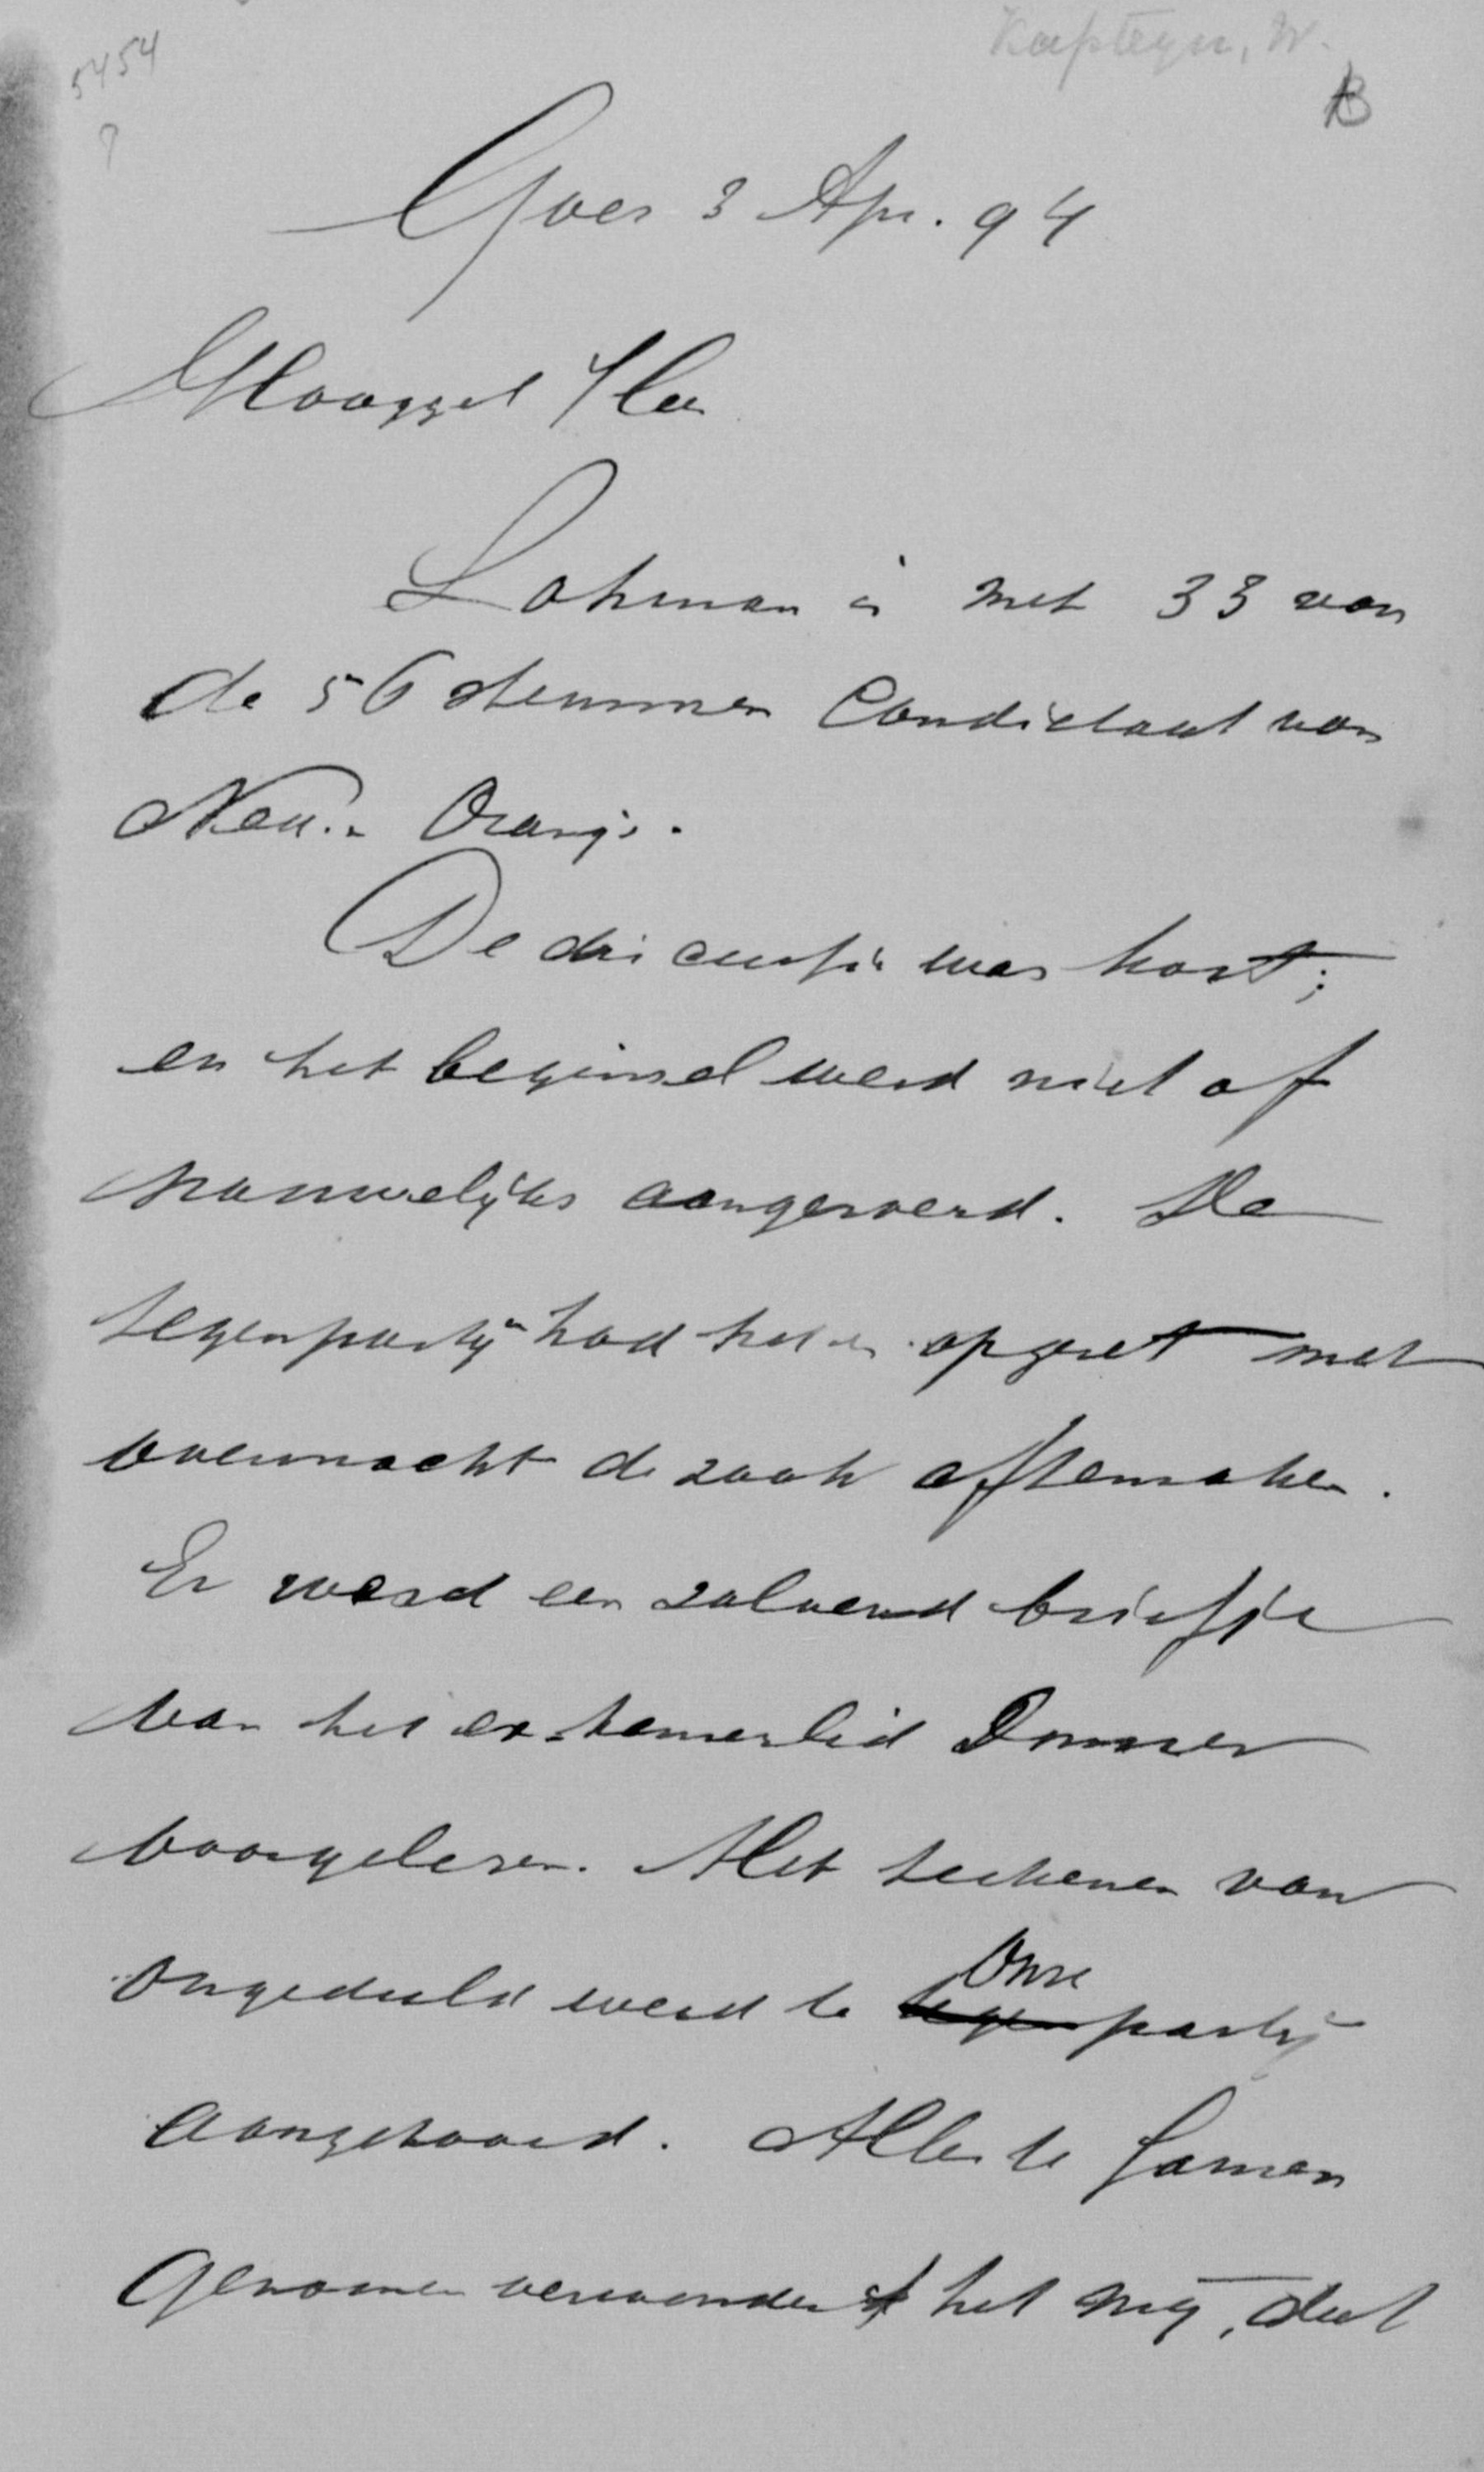 5454
Kapteyn, W.
?
B
Goes 3 Apr. 94
Hooggel Heer
Lohman is met 33 van
de 56 stemmen Candidaat van
Ned. en Oranje.
De discussie was kort;
en het beginsel werd niet of
nauwelijks aangeroerd. De
tegenpartij had het er opgezet met
overmacht de zaak aftemaken.
Er werd een zalvend briefje
van het ex-kamerlid Donner
voorgelezen. Met teekenen van
ongeduld werd de
Onze
partij
aangehoord. Alles te samen
genomen verwondert het mij, dat